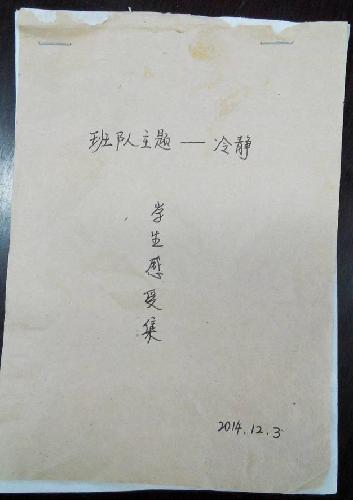 班队主题——冷静
学生感受集
2014.12.3